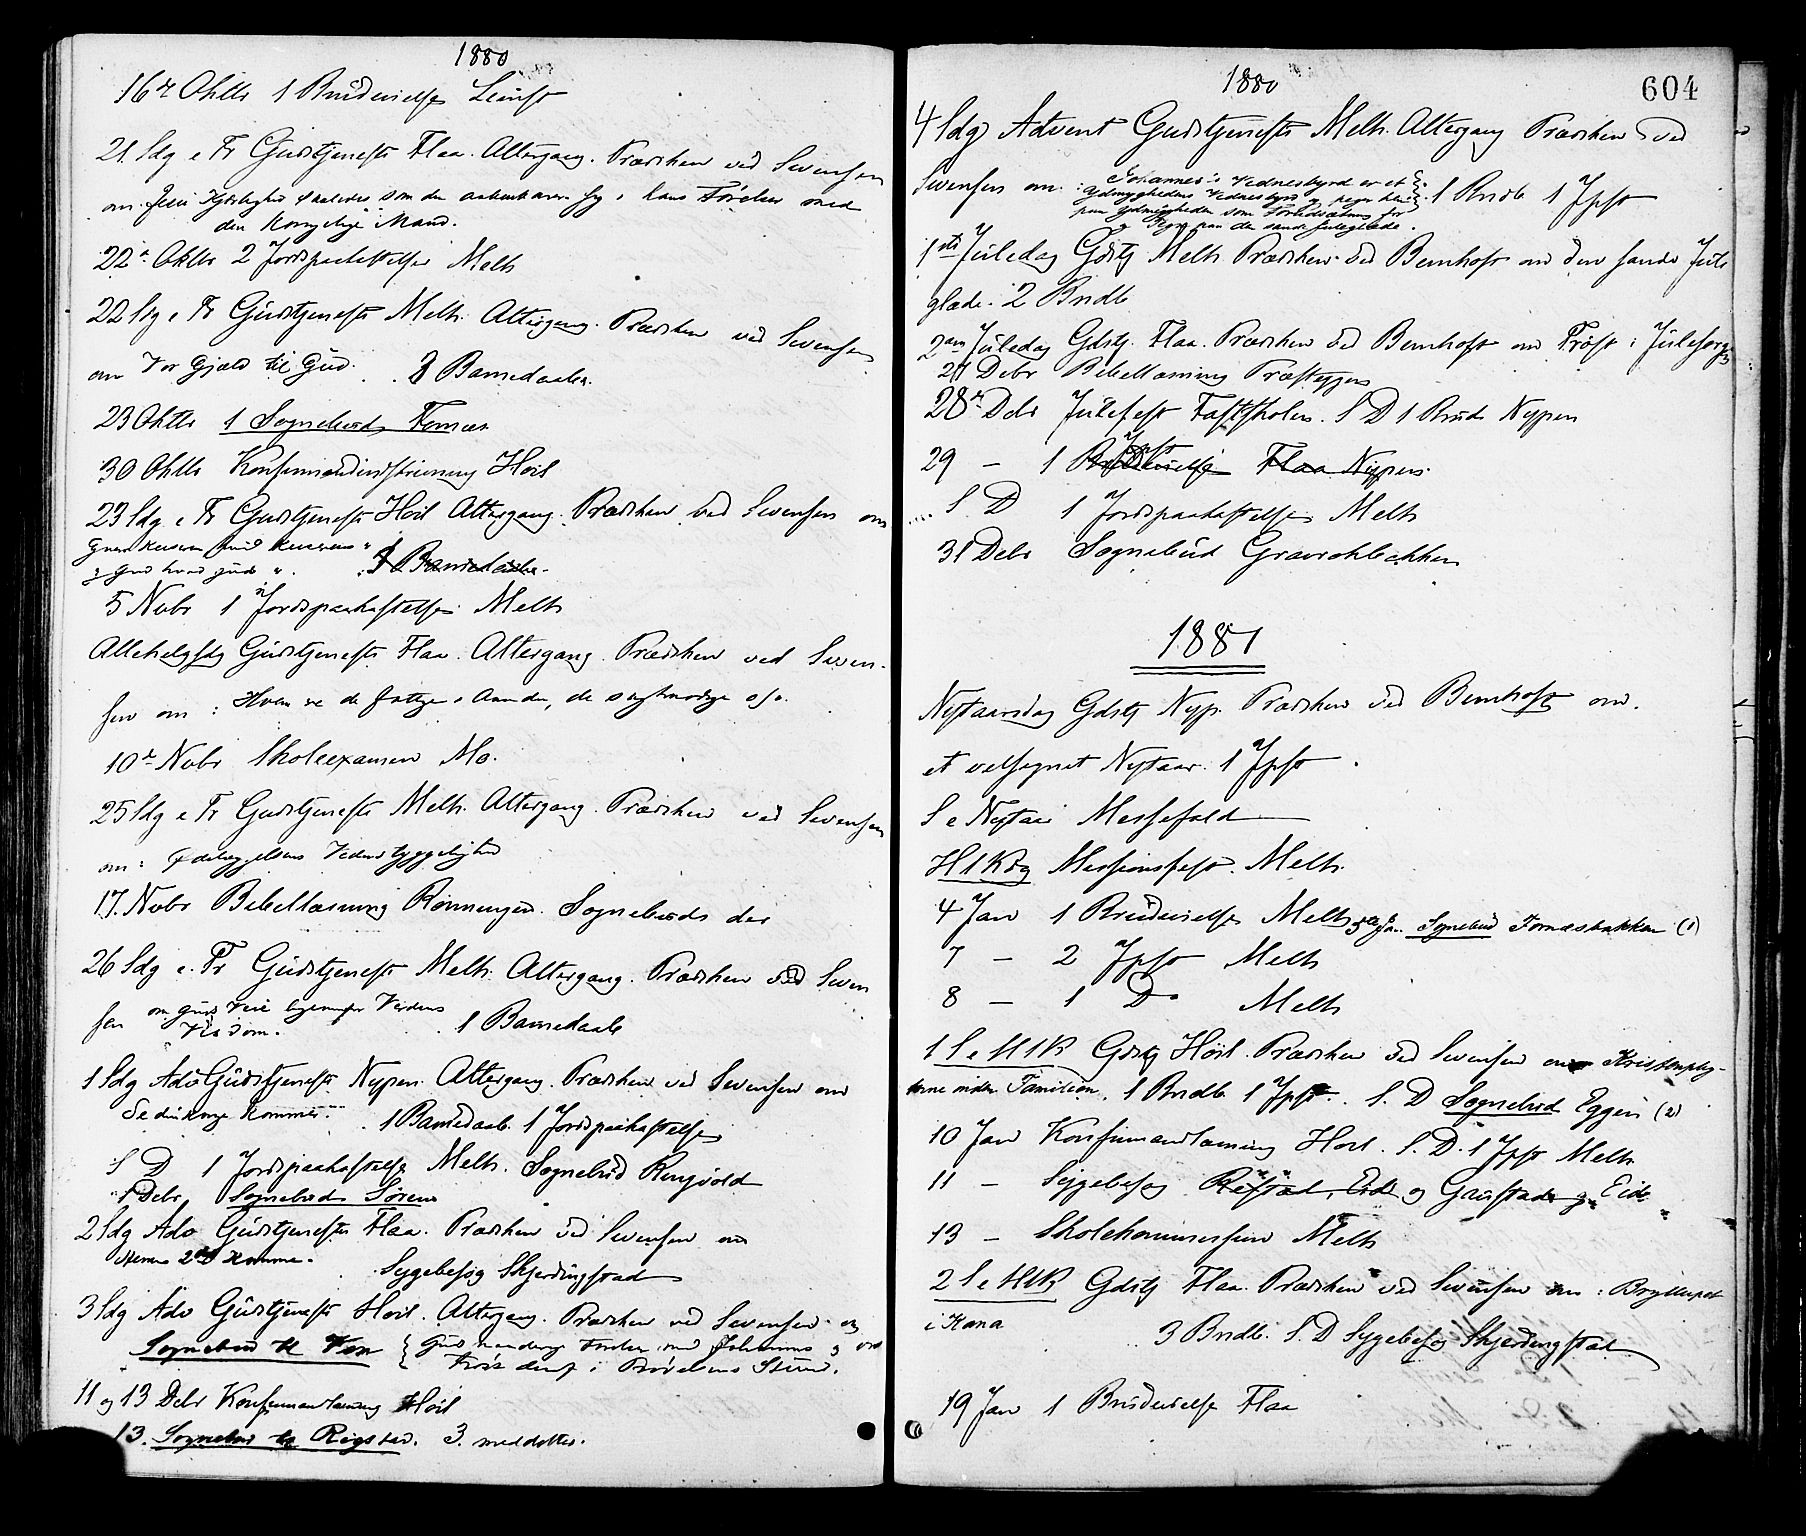 1880
16de Oktb 1 Brudvielse Leinst
21 Sdg e Tr Gudstjeneste Flaa. Altergang. Prædiken ved Svensen
om Jesu Kjærlighed saaledes som den aabenbarer sig i hans Færden med
den kongelige Mand.
22de Oktb 2 Jordpaakastelser Melh
22 Sdg e Tr Gudstjeneste Melh. Altergang. Prædiken ved Svensen
om Vor Gjæld til Gud. 3 Barnedaab.
23 Oktb 1 Sognebud Fornæs
30 Oktb Konfirmandindskrivning Høil
23 Sdg e Tr Gudstjeneste Høil Altergang. Prædiken ved Svensen om
Giver Keiseren hvad Keiserens
og Gud hvad Guds er. 3 Barnedaab.
5 Nvbr 1 Jordpaakastelse Melh
Allehelgsdg Gudstjeneste Flaa. Altergang. Prædiken ved Sven-
sen om: Hvem er de fattige i Aanden, de sagtmodige osv.
10de Nvbr Skoleexamen Mo.
25 Sdg e Tr Gudstjeneste Melh. Altergang. Prædiken ved Svensen
om: Ødelæggelsens Vederstyggelighed
17. Nvbr Bibellæsning Rønningen. Sognebud der
26 Sdg e. Tr Gudstjeneste Melh. Altergang. Prædiken ved Sven
sen om Guds Veie ligeoverfor Verdens
Visdom. 1 Barnedaab
1 Sdg Adv Gudstjeneste Nypen. Altergang. Prædiken ved Svensen om
Se din Konge kommer. 1 Barnedaab. 1 Jordpaakastelse
S D 1 Jordpaakastelse Melh. Sognebud Ringvold
1 Debr. Sognebud Søren
2 Sdg Adv Gudstjeneste Flaa. Prædiken ved Svensen om
Herrens 2det Komme. Sygebesøg Skjerdingstad
3 Sdg Adv Gudstjeneste Høil. Altergang. Prædiken ved Svensen om
Sognebud til
Johannes og vor
Trøst deraf i Prøvelsens Stund.
11 og 13 Debr Konfirmandlæsning Høil
13. Sognebud til Rigstad. 3. meddelte.
1880
604
4 Sdg Advent Gudstjeneste Melh. Altergang Prædiken ved
Svensen om: Johannes's Vidnesbyrd er et
Ydmyghedens Vidnesbyrd og peger hen
paa Ydmygheden som Forberedelsens
og Tegn paa den sande Juleglæde. 1 Brdb 1 Jpst
1ste Juledag Gdstj Melh Prædiken ved Bernhoft om den sande Jule
glæde. 2 Brdb
2den Juledag Gdstj. Flaa. Prædiken ved Bernhoft om Trøst i Julesorg
27 Debr Bibellæsning Præstegjen
28de Debr Julefest Fastskolen. S D 1 Brud Nypen
29 — 1 Brudvielse Jpst Flaa Nypen.
S D 1 Jordpaakastelse Melh
31 Debr Sognebud Gravrokbakken
1881
Nytaarsdag Gdstj Nyp. Prædiken ved Bernhoft om.
et velsignet Nytaar. 1 Jpst
S e Nytaar Messefald
H 1 Kdg Missionsfest. Melh.
4 Jan 1 Brudvielse Melh 5te Jan. Sognebud Fornæsbakken (1)
7 — 2 Jpst Melh
8 — 1 Do Melh
1 S e H1K Gdstj Høil. Prædiken ved Svensen om Kristenplig-
terne inden Familien. 1 Brdb 1 Jpst. S. D Sognebud Eggen (2)
10 Jan Konfirmandlæsning Høil. S. D. 1 Jpst Melh
11 — Sygebesøg Røstad, Eid og Gravstad og Eide
13 — Skolekommission Melh
2 S e H1K Gdstj Flaa. Prædiken ved Svensen om: Bryllupet
i Kana 3 Brdb. S. D Sygebesøg Skjerdingstad
19 Jan 1 Brudvielse Flaa